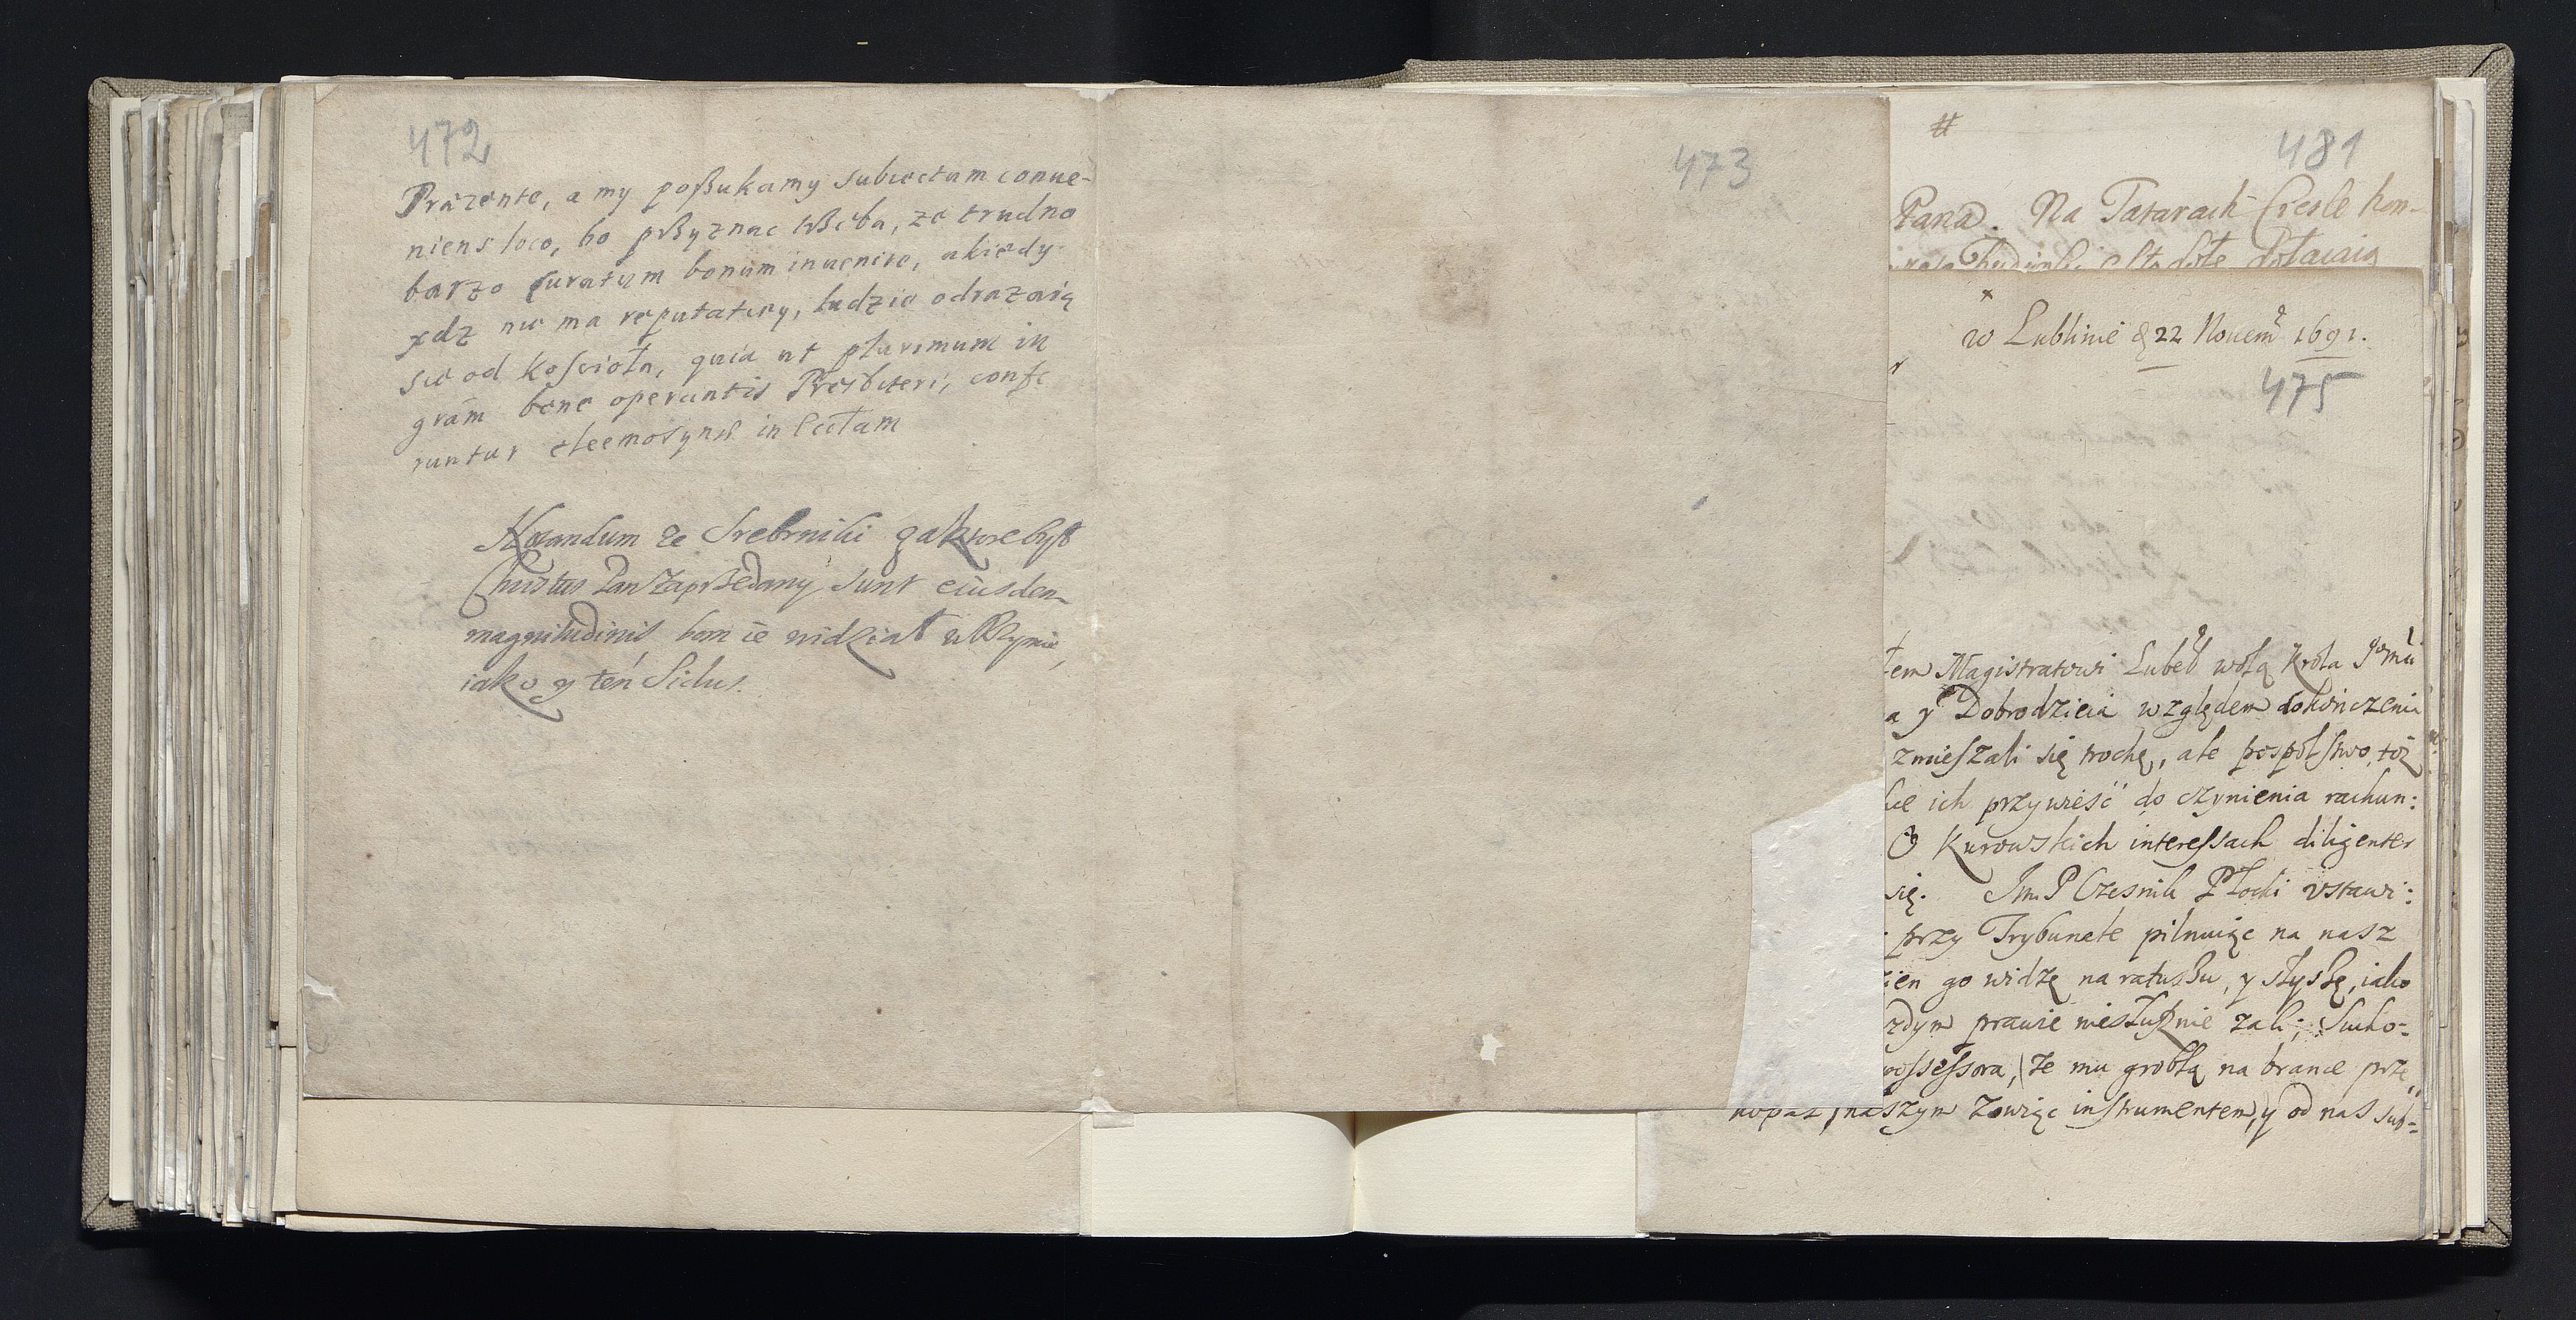 472
Präzente, a my poßukamy subiectum conue-
niens loco, bo pßyznac tßeba, ze trudno
barzo curatum bonum inuenire, a kiedy
xdz nie ma reputatiey, ludzie odrazaią
sie od koscioła, quia ut plurimum in
gram bene operantis Presbiteri, confe
runtur eleemosynæ in
Notandum ze Srebrniki za ktore był
Christus Pan zaprßedany sunt eiusdem
magnitudinis, bom ie widział w Rzymie,
iako y ten Siclus.
473
#
481
Pana. Na Tatarach
*
w Lublinie d 22 Nouemb 1691.
475
tem Magistratowi Lubel wolą Krola Jomći
a y Dobrodzieia względem dokończenia
zmieszali się trochę, ale pospolstwo, toż
ich przywieść do czynienia rachun:
O Kurowskich interessach diligenter
się. Jm P Czesnik Płocki vstawi:
przy Trybunale pilnuiąc na nasz
ien go widzę na ratuszu, y słyszę, iako
zdym prawie niesłusznie zali; Sucho-
possessora, że mu groblą na branie prze
kopał naszym zowiąc instrumentem, y od nas sub-